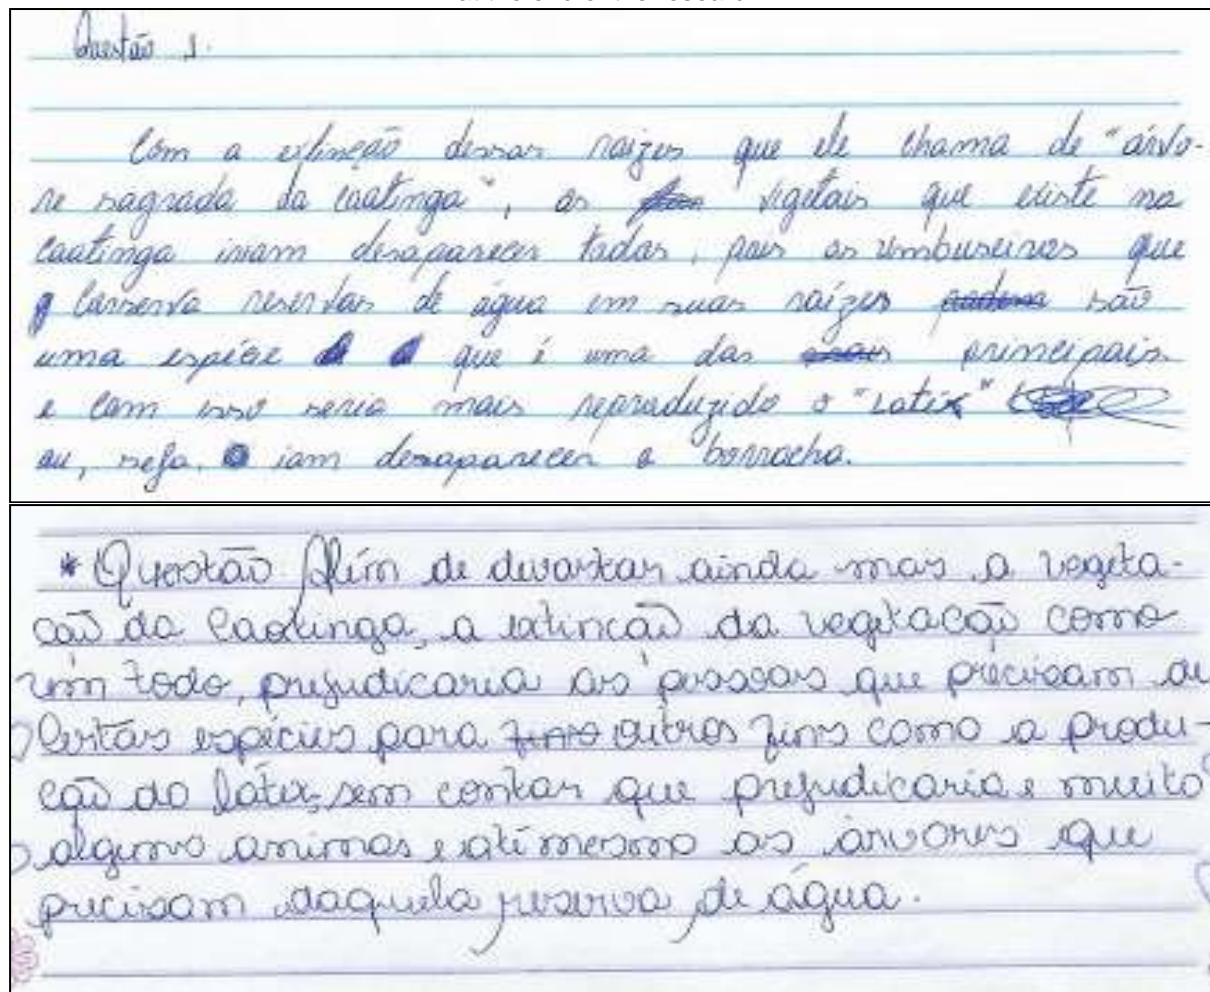 Questão 1.
Com a extinção dessas raizes que ele chama de "árvo-
re sagrada da caatinga", as vegetais que existe na
caatinga iriam desaparecer todas, pois os umbuseiros que
conserva reservas de água em suas raízes são
uma espécie que é uma das principais
e com isso seria mais reproduzido o "Latéx"
ou, seja, iam desaparecer a borracha.
* Questão Além de devastar ainda mas a vegeta-
cão da Caatinga, a extincão da vegetacão como
um todo, prejudicaria as pessoas que precisam de
certas espécies para outros fins como a produ-
cão do látex, sem contar que prejudicaria e muito
alguns animas e até mesmo as árvores que
precisam daquela reserva de água.